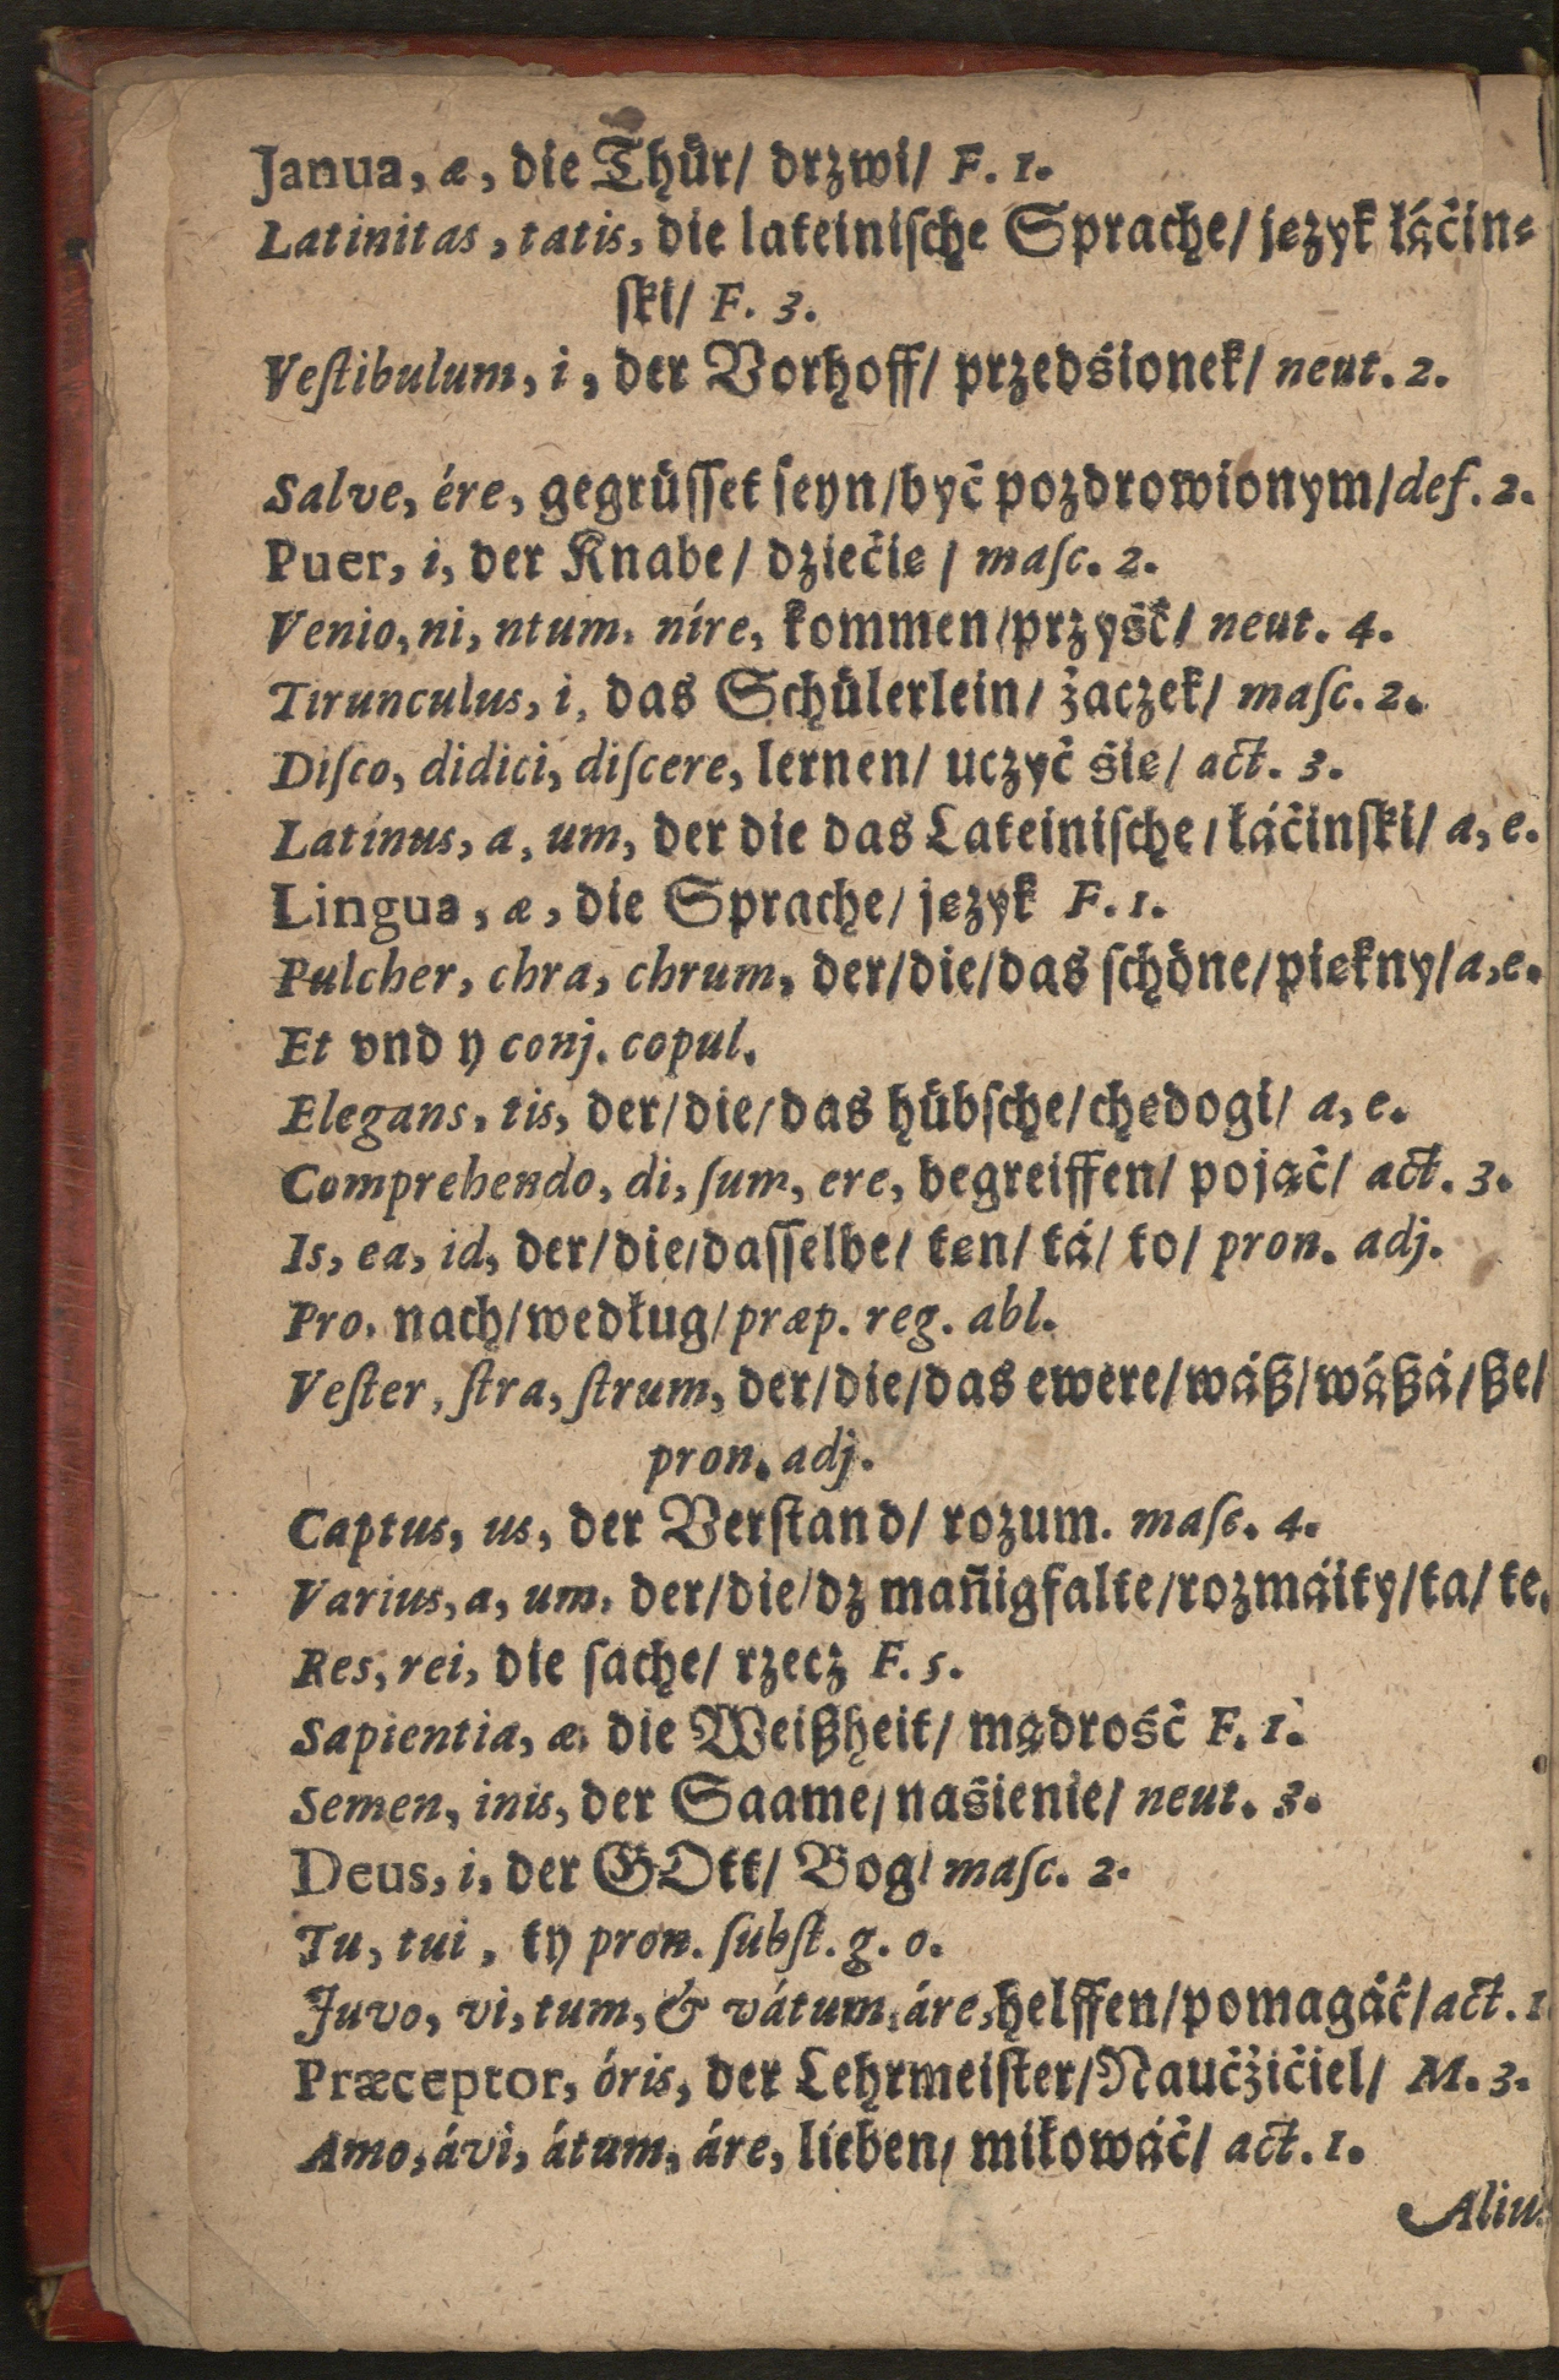 Janua, æ, die Thür/ drzwi/ F. 1.
Latinitas, tatis, die lateiniſche Sprache/ język łáćin⸗
ſki/ F. 3.
Veſtibulum, i, der Vorhoff/ przedśionek/ neut. 2.
Salve, ére, gegrüſſet ſeyn/być pozdrowionym/def. 2.
Puer, i, der Knabe/ dziećię / maſc. 2.
Venio, ni, ntum, níre, kommen/przyść/ neut. 4.
Tirunculus, i, das Schülerlein/ żaczek/ maſc. 2.
Diſco, didici, diſcere, lernen/ uczyć śię/ act. 3.
Latínus, a, um, der die das Lateiniſche/łáćinſki/ a, e.
Lingua, æ, die Sprache/ język F. 1.
Pulcher, chra, chrum, der/die/das ſchöne/piękny/a, e.
Et vnd y conj. copul.
Elegans, tis, der/die/das hübſche/chędogi/ a, e.
Comprehendo, di, ſum, ere, begreiffen/ pojąć/ act. 3.
Is, ea, id, der/die/daſſelbe/ ten/ tá/ to/ pron. adj.
Pro, nach/według/præp. reg. abl.
Veſter, ſtra, ſtrum, der/die/das ewere/wáß/wáßá/ße/
pron. adj.
Captus, us, der Verſtand/ rozum. maſc. 4.
Varius, a, um, der/die/dz mañigfalte/rozmáity/ta/ te.
Res, rei, die ſache/ rzecz F. 5.
Sapientia, æ, die Weißheit/ mądrość F. 1.
Semen, inis, der Saame/naśienie/ neut. 3.
Deus, i, der GOtt/ Bog/ maſc. 2.
Tu, tui, ty pron. ſubſt. g. o.
Juvo, vi, tum, & vátum, áre, helffen/pomagáć/act. 1
Præceptor, óris, der Lehrmeiſter/Naućżićiel/ M. 3.
Amo, ávi, átum, áre, lieben/ miłowáć/ act. 1.
Alius